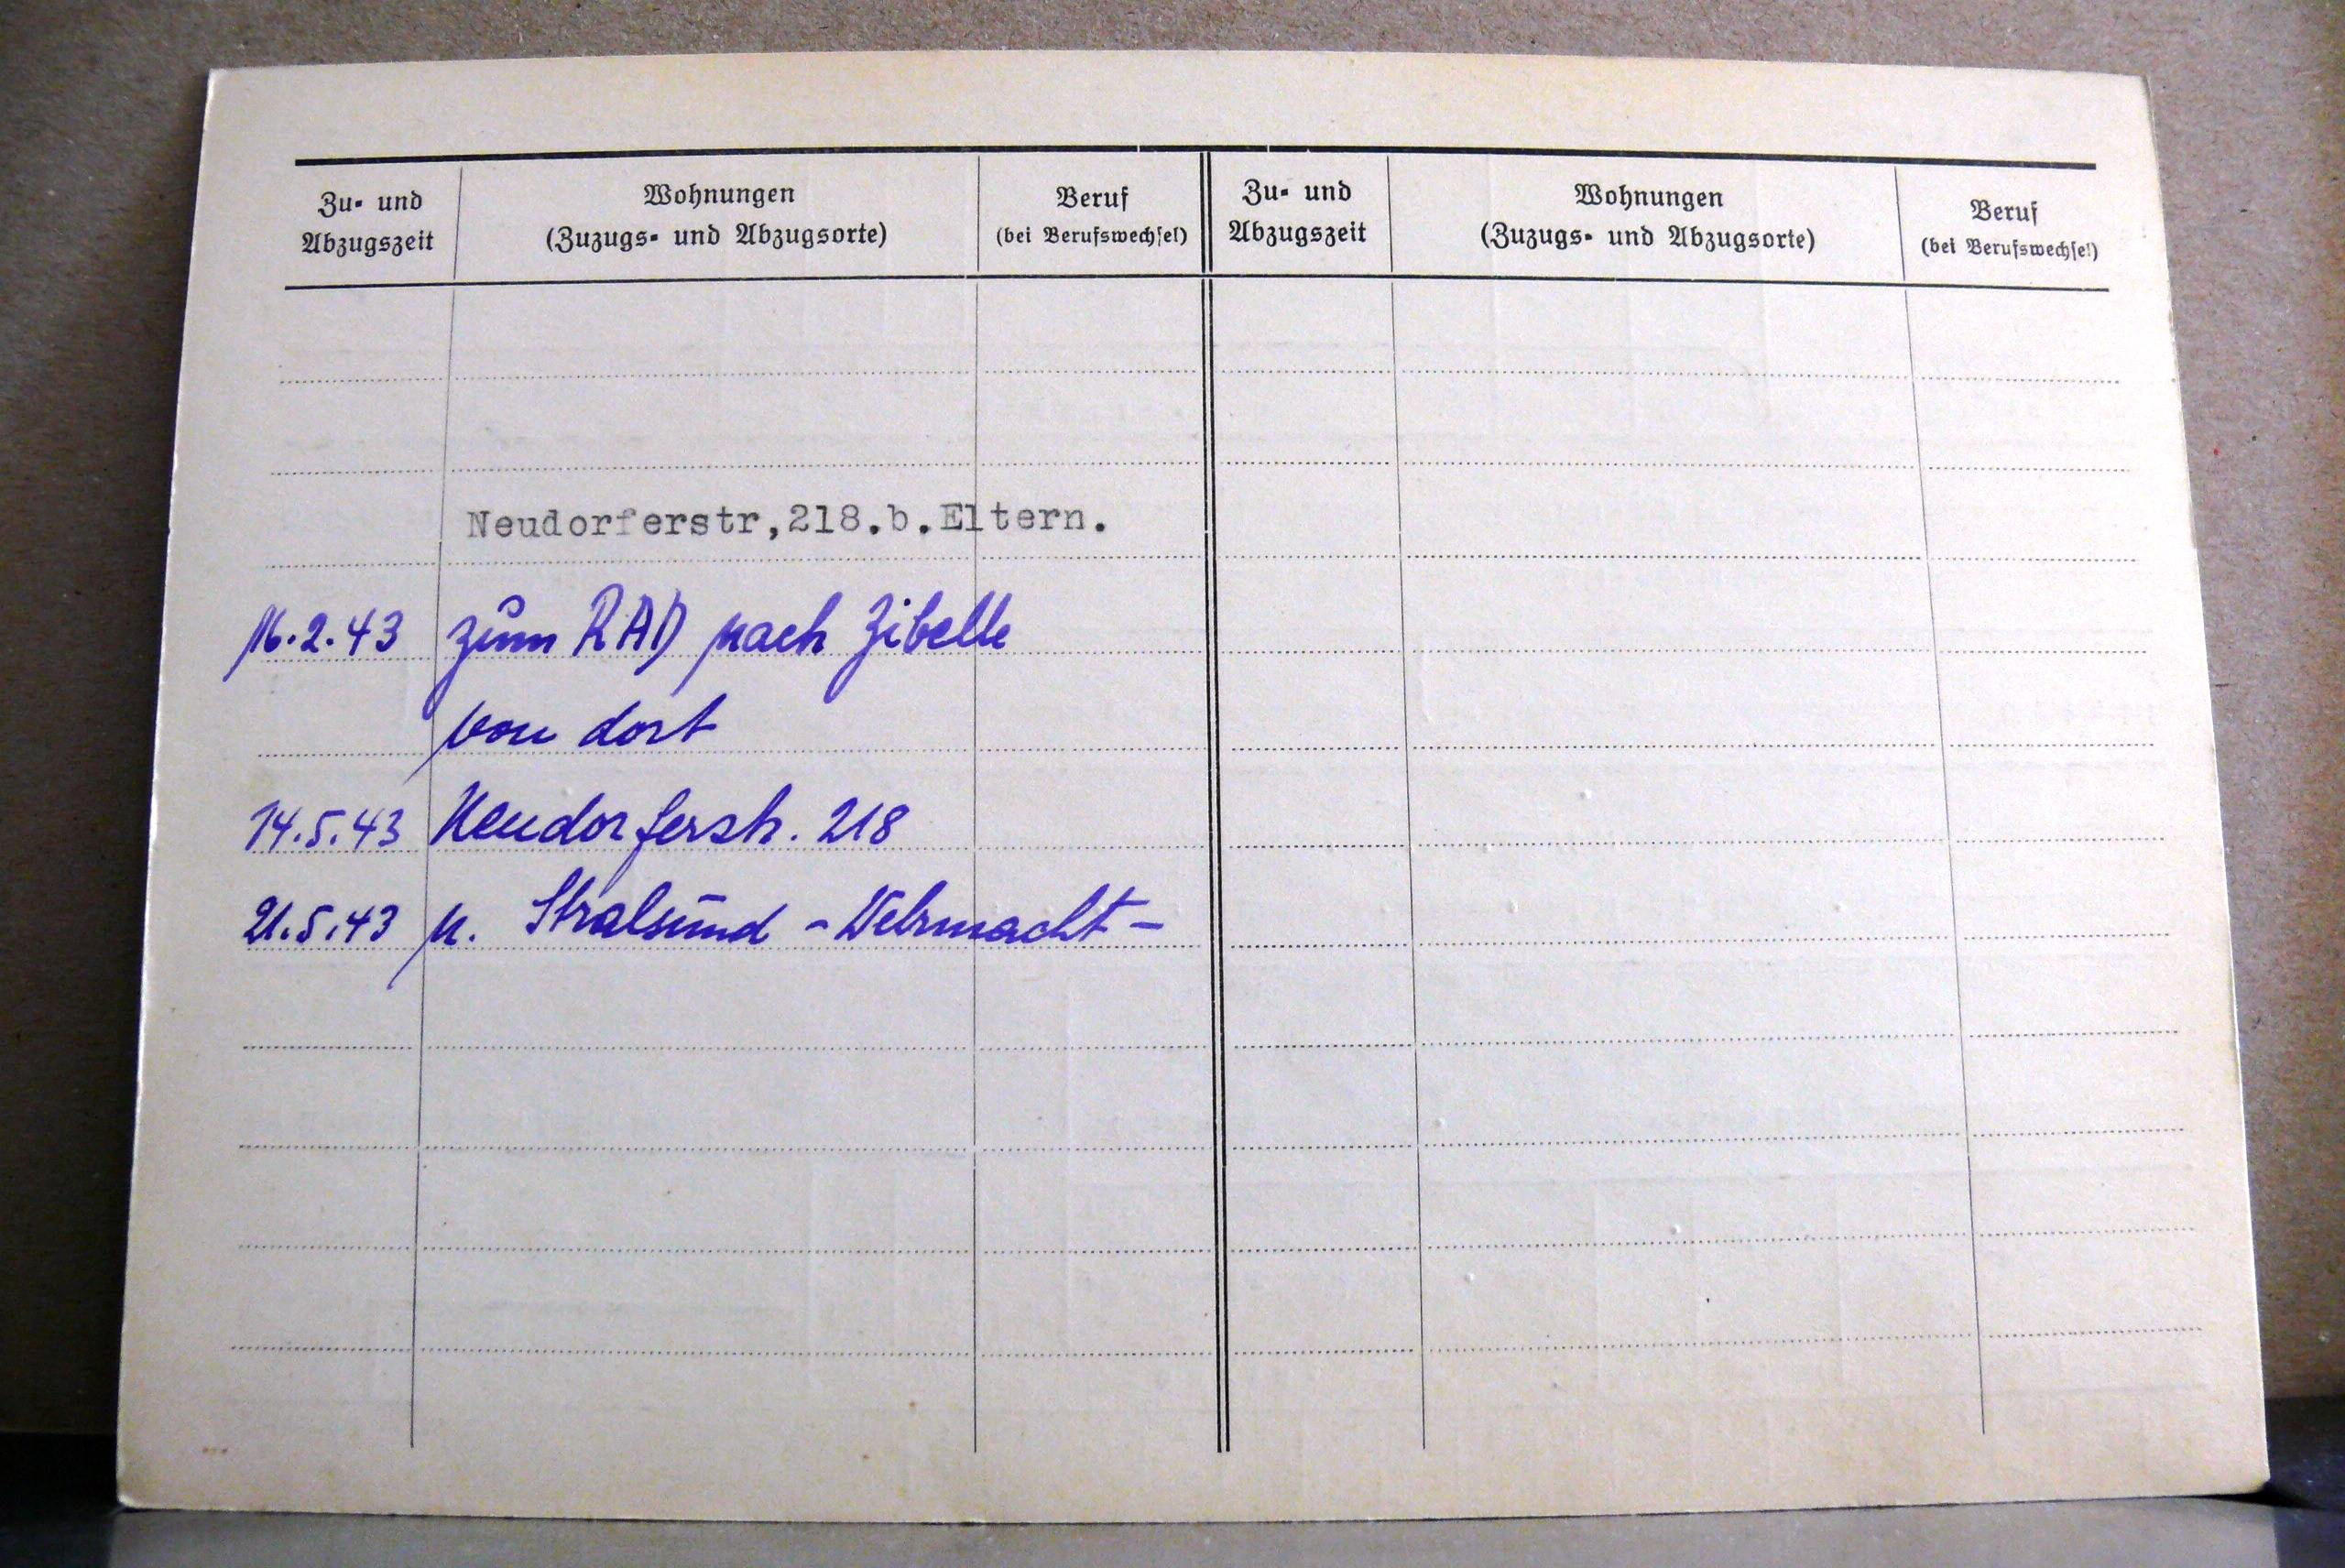 Zu- und Abzugszeit
Wohnungen
(Zuzugs- und Abzugsorte)
Beruf
(bei Berufswechsel)
Zu- und Abzugszeit
Wohnungen
(Zuzugs- und Abzugsorte)
Beruf
(bei Berufswechsel)
Neudorferstr,218.b.Eltern.
16.2.43 zum RAD nach Zibelle
von dort
14.5.43 Neudorferstr. 218
21.5.43 n. Stralsund - Wehrmacht -